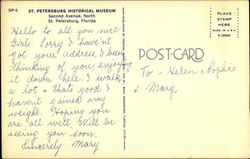 SP-5
ST. PETERSBURG HISTORICAL MUSEUM
Second Avenue, North
St. Petersburg, Florida
Hello to all you nice
Girls. Sorry I haven't
got your address, I been
thinking of you, enjoying
it down here. I walk
a lot & that good I
haven't gained any
weight. Hoping you
are all well. Will be
seeing you soon.
Sincerely Mary
POST-CARD
To - Helen - Sophie
& Marg
PLACE
STAMP
HERE